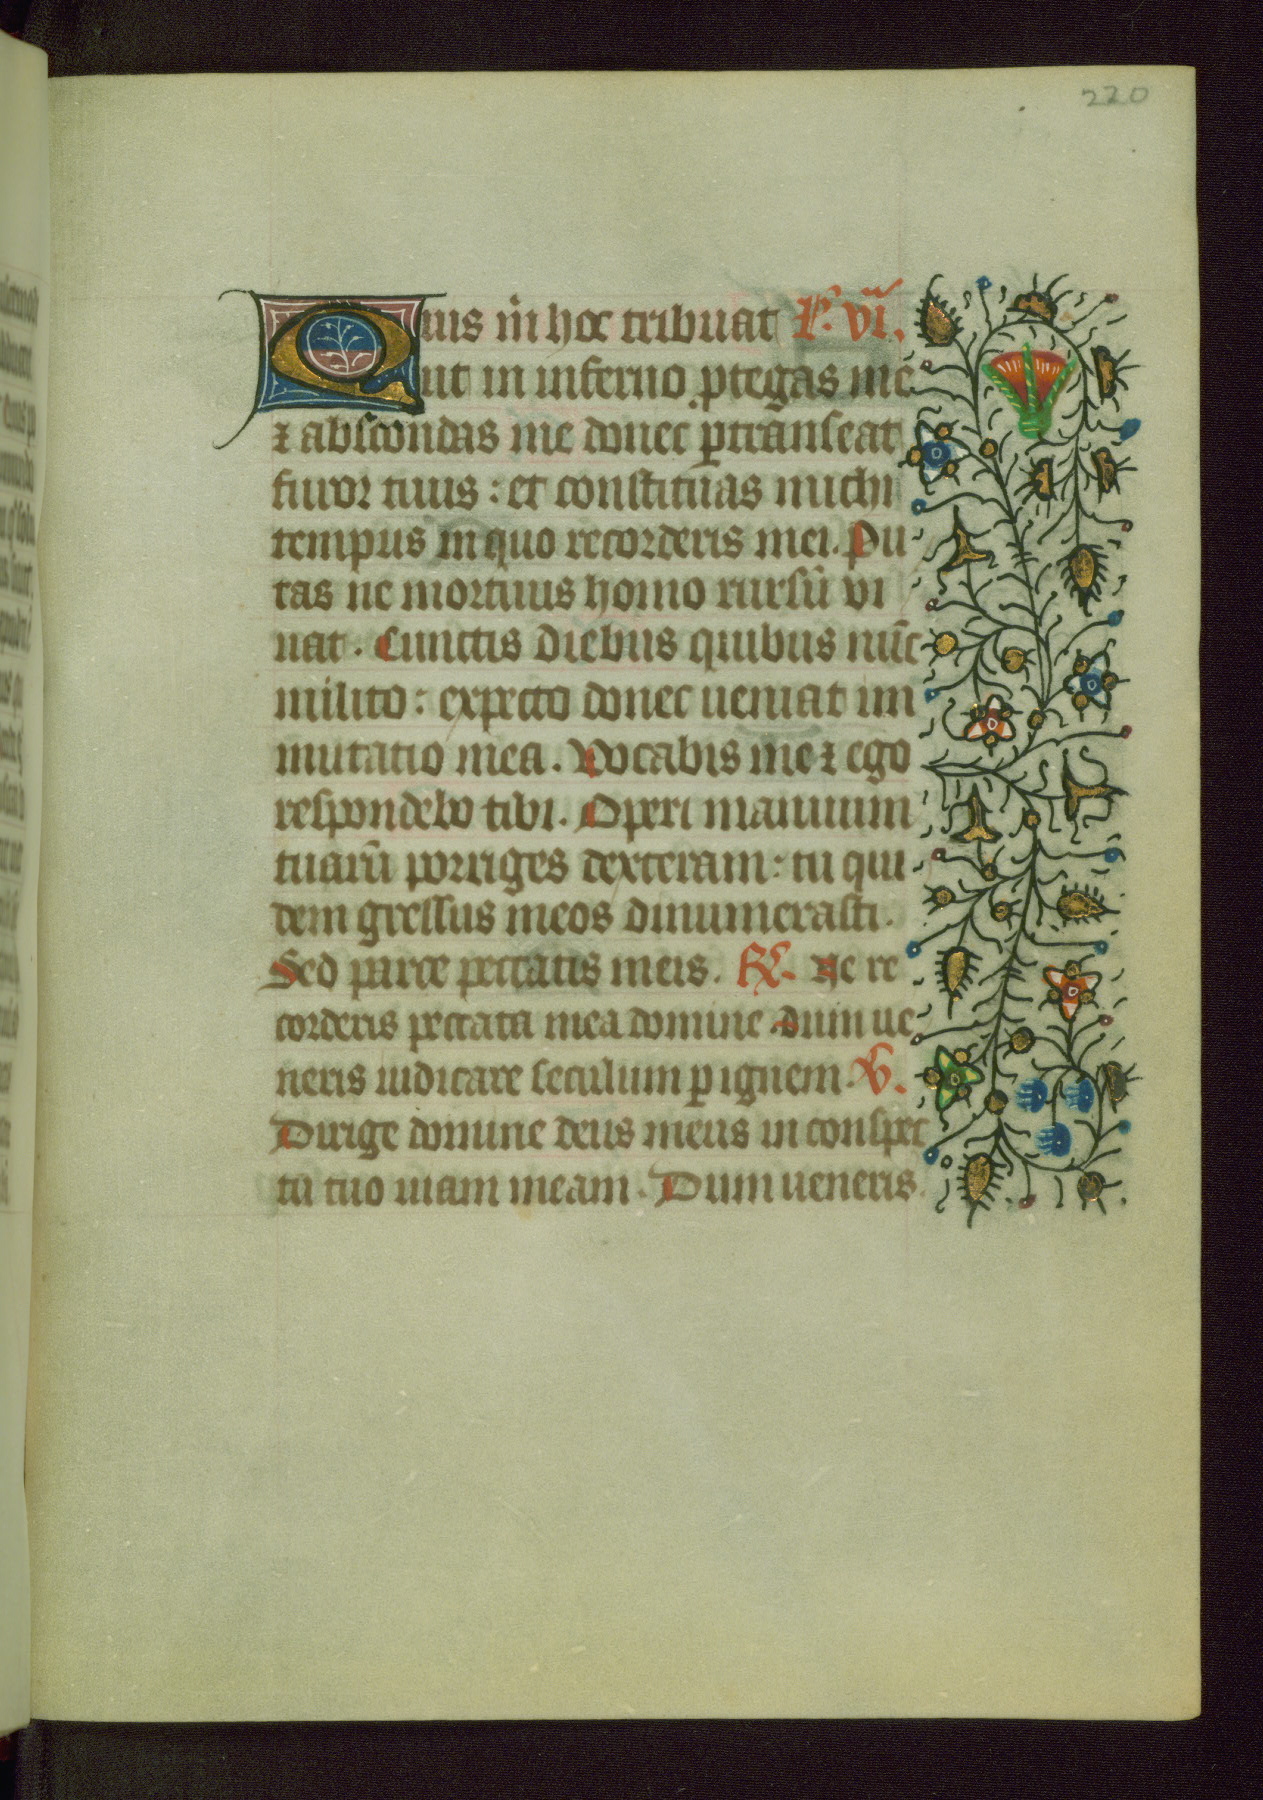 220
Quis m̄ hoc tribuat L. vi.
ut in inferno ꝓtegas me
⁊ abscondas me donec ꝑtranseat
furor tuus : et constituas michi
tempus in quo recorderis mei. Pu
tas ne mortuus homo rursū vi
uat. Cunctis diebus quibus nūc
milito : expecto donec ueniat im
mutatio mea. Vocabis me ⁊ ego
respondebo tibi. Operi manuum
tuarū porriges dexteram : tu qui
dem gressus meos dinumerasti.
Sed parce peccatis meis. R̸. Ne re
corderis peccata mea domine. Dum ue
neris iudicare seculum ꝑ ignem. V̸.
Dirige domine deus meus in conspec
tu tuo uiam meam. Dum ueneris.